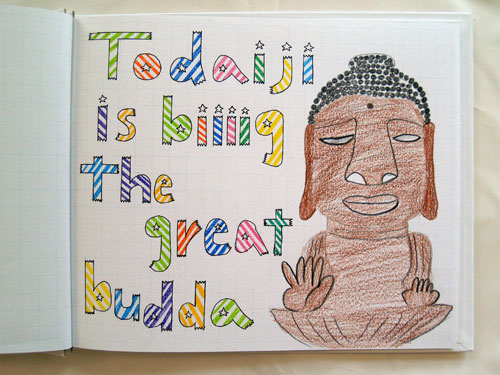 Todaiji
is biiiig
the
great
budda